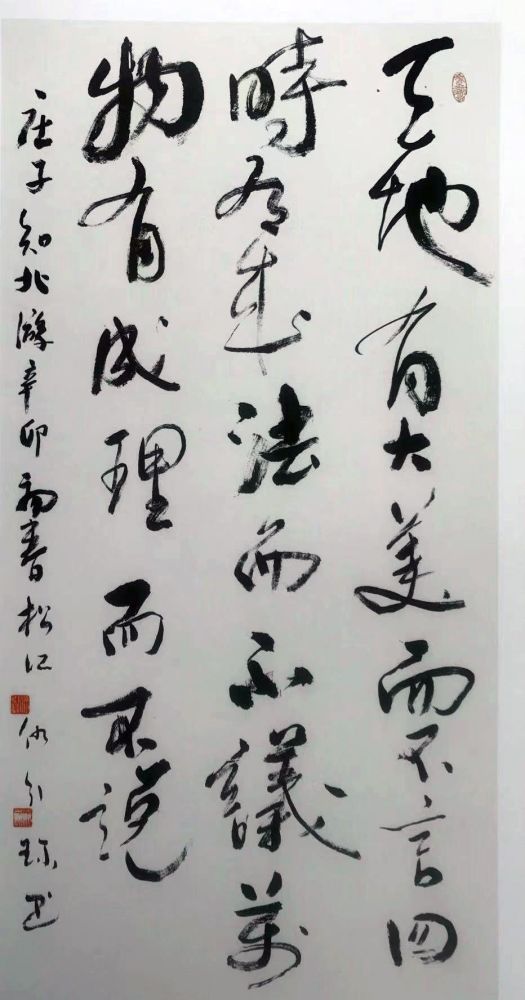 天地有大美而不言四
時有法而不議萬
物有成理而不說
庄子知北游辛卯春松江